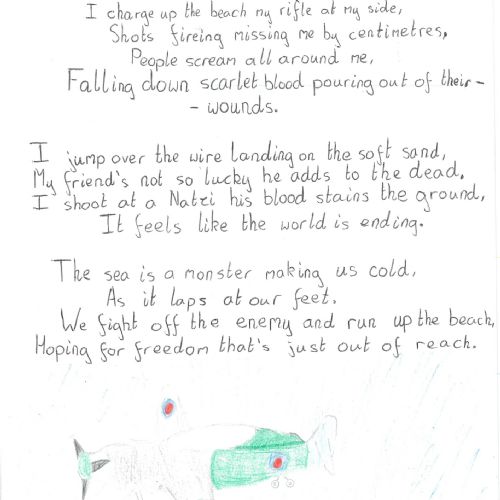 I charge up the beach my rifle at my side,
Shots fireing missing me by centimetres,
People scream all around me,
Falling down scarlet blood pouring out of their -
- wounds.
I jump over the wire landing on the soft sand,
My friend's not so lucky he adds to the dead.
I shoot at a Natzi his blood stains the ground,
It feels like the world is ending.
The sea is a monster making us cold,
As it laps at our feet.
We fight off the enemy and run up the beach,
Hoping for freedom that's just out of reach.